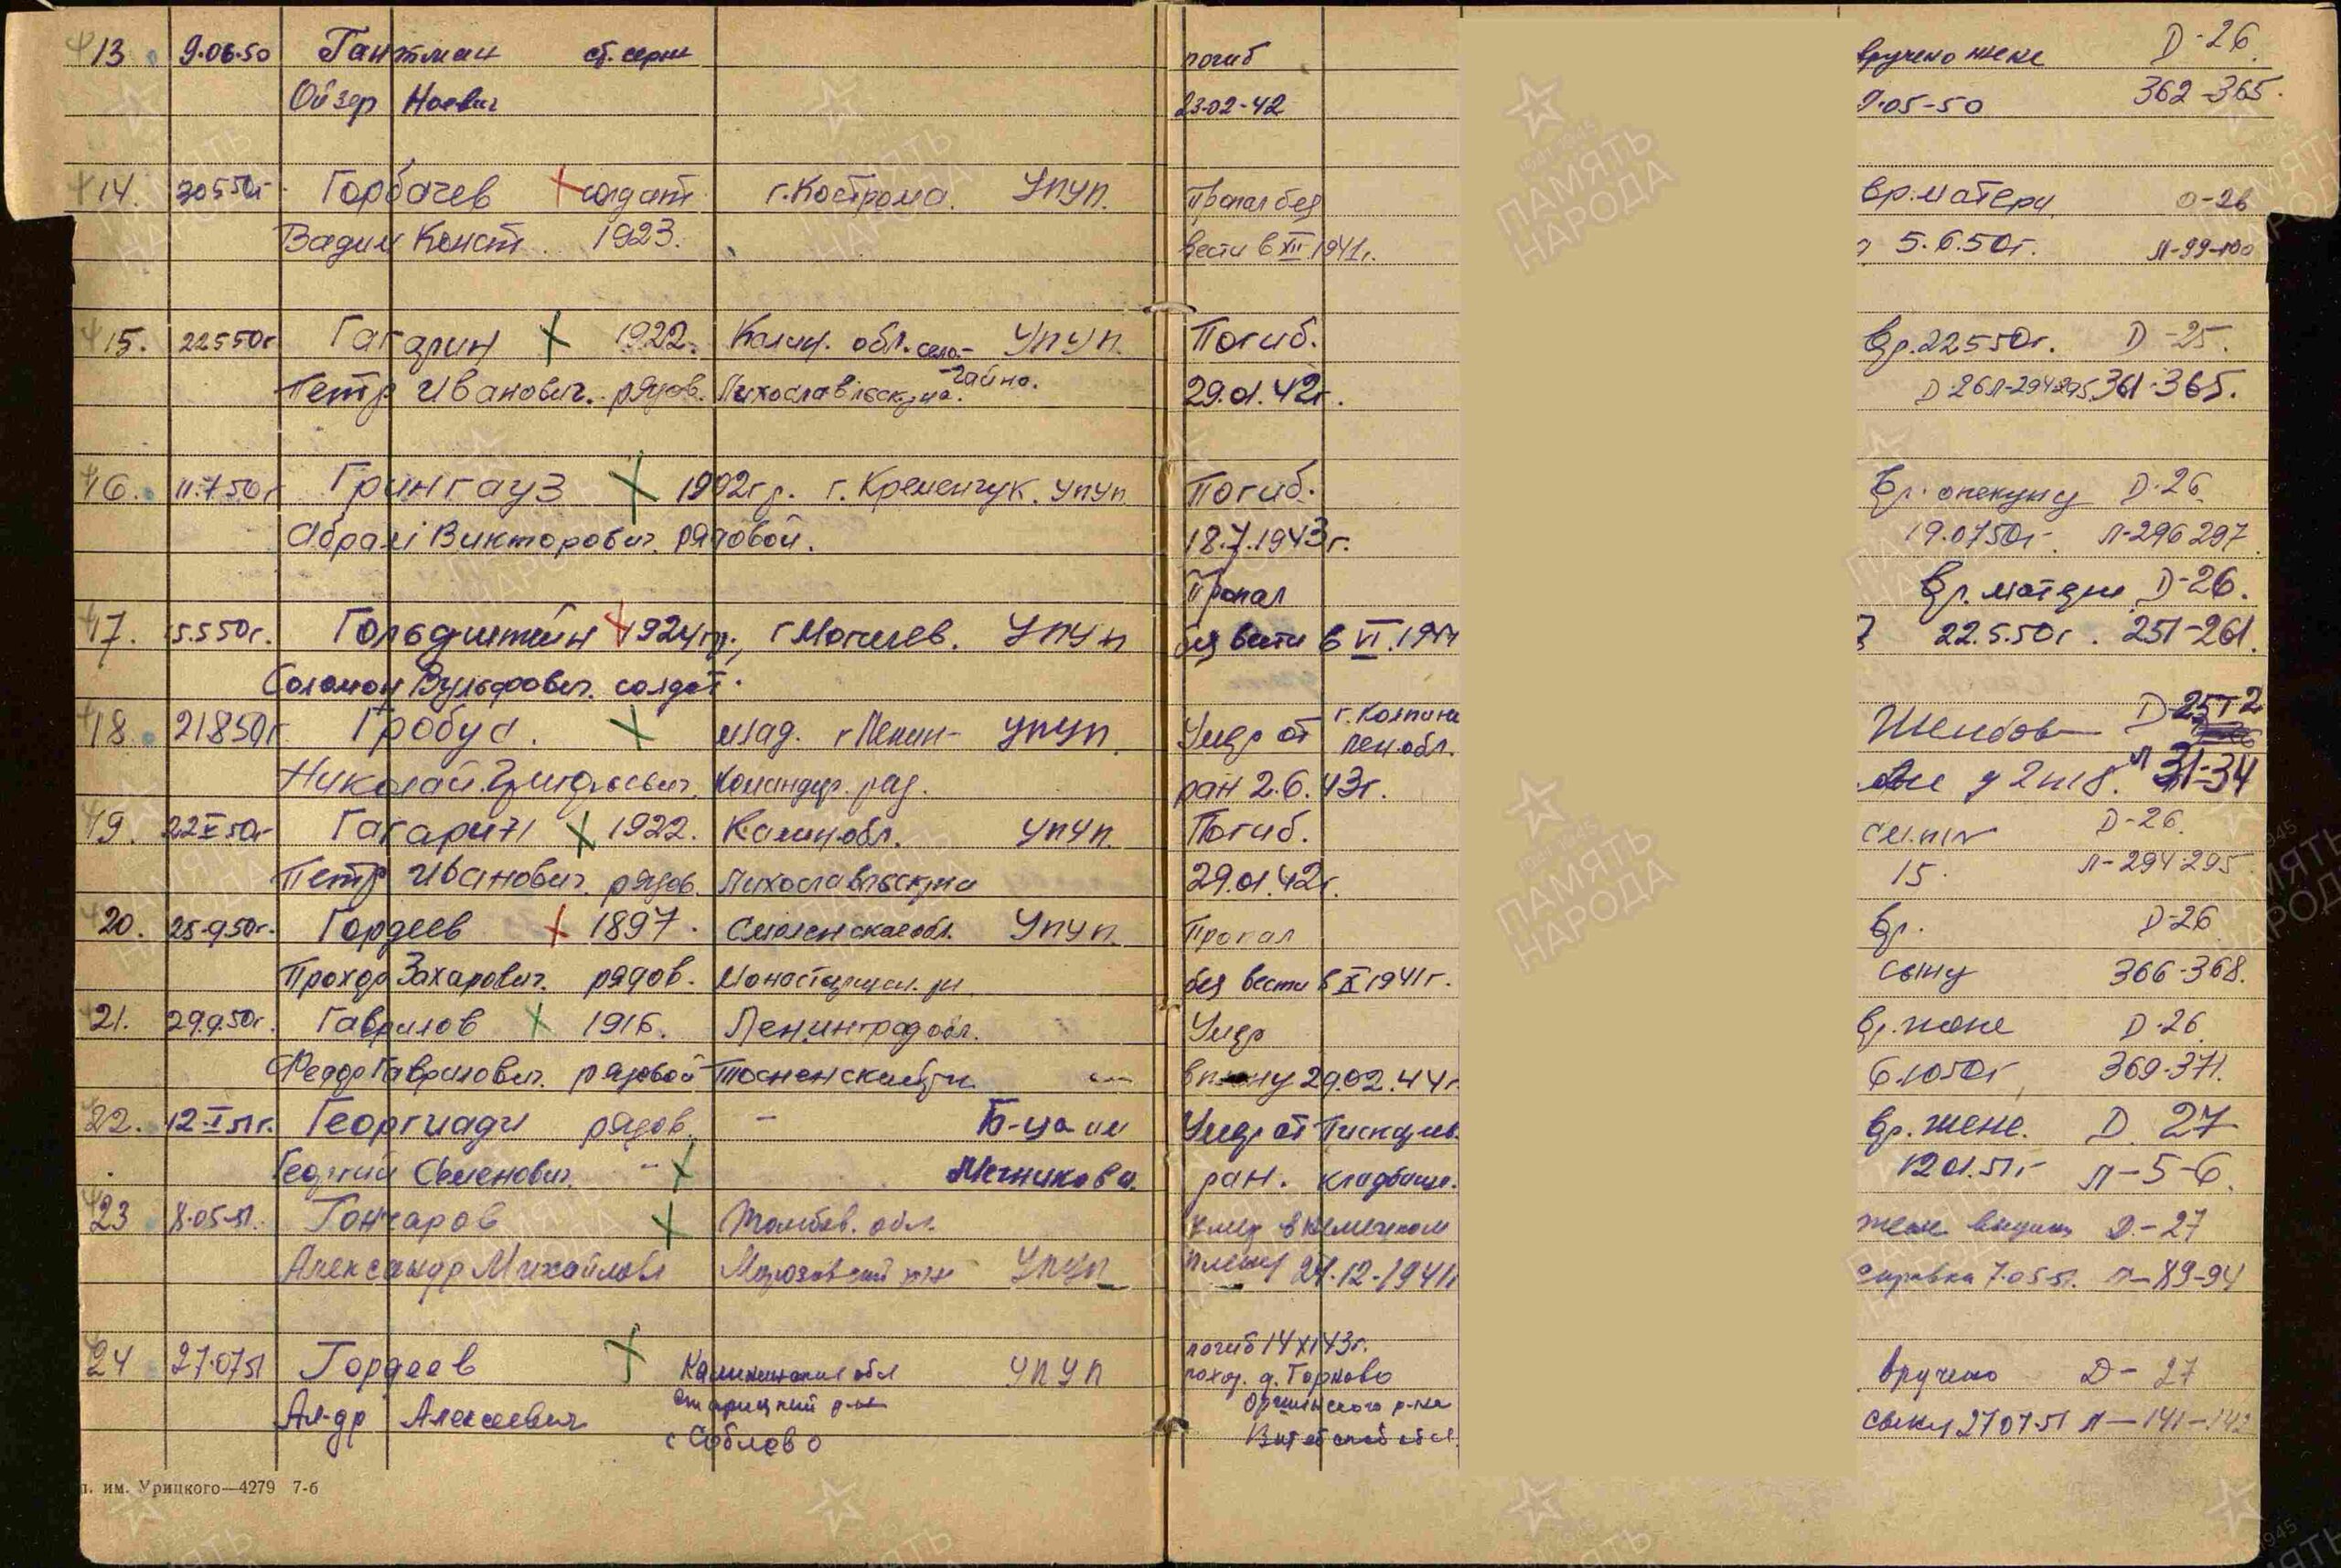 13 9.06.50 Гантман ст. серж погиб вручено жене D-26
Ойзер Ноевич 23.02-42 9.05-50 362-365.
14. 30550г Горбачев солдат г. Кострома. УПУП. Пропал без вр. матери. D-26
Вадим Конст. 1923. вести в XII 1941г. 5.6.50г. Л-99-100
15. 22550г Гагарин 1922. Калин. обл. село- УПУП. Погиб. Вр. 22550г. D-25.
Петр Иванович. рядов. Лихославльск. р-на. -Чайно. 29.01.42г. D 26 Л-294-295. 361-365.
16. 11.750г Грингауз 1902г р. г. Кременчук. УПУП Погиб. Вр. опекуну D-26.
Абрам Викторович. рядовой. 18.7.1943г. 19.0750г. Л-296 297.
Пропал Вр. матери D-26.
17. 15.550г. Гольдштейн 1924гр., г Могилев. УПУП без вести в VI. 22.5.50г. 251-261.
Соломон Вульфович. солдат.
18. 21850г Гробус. млад. г Ленин- УПУП. Умер от г. Колпино лен. обл. D-
Николай Григорьевич. Командир. ран 2.6.43г. 31-34
19. 22X50г Гагарин 1922. Калин. обл. УПУП. Погиб. D-26.
Петр Иванович. рядов. Лихославльск. р-на 29.01.42г. 15. Л-294-295
20. 25.950г. Гордеев 1897. Смоленская обл. УПУП. Пропал Вр. D-26
Прохор Захарович. рядов. Монастырщин. рн. без вести в X 1941г. сыну 366-368.
21. 29.9.50г. Гаврилов 1916. Ленинград обл. Умер Вр. жене D-26
Федор Гаврилович. рядовой Тосненский р-н. в плену 29.02.44г 6.1050г. 369-371.
22. 12.I51г. Георгиади рядов. - Б-ца им Умер от Пискарев. Вр. жене. D. 27
Георгий Семенович. Мечникова. ран. кладбище. 1201.51г Л-5-6.
23 8.05-51. Гончаров Тамбов. обл. умер в немецком жене D-27
Александр Михайлов Морозовский р-н УПУП плену 24.12-1941г справка 7.05-51. Л-89-94
погиб 14XI43г.
24 27.0751 Гордеев Калининская обл УПУП похор. д. Горново вручено D-27
Ал-др Алексеевич Старицкий р-н Оршинского р-на сыну 27 07-51 Л-141-142
с Соблево Витебской обл.
п. им. Урицкого—4279 7-6
ПАМЯТЬ НАРОДА